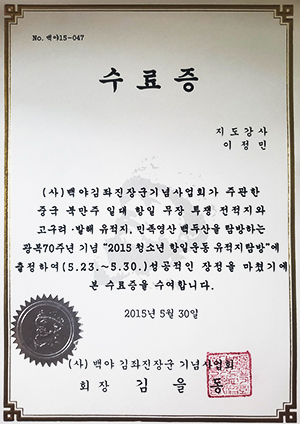 No. 백야15-047
수료증
지도강사
이정민
(사)백야김좌진장군기념사업회가 주관한
중국 북만주 일대 항일 무장 투쟁 전적지와
고구려·발해 유적지, 민족영산 백두산을 탐방하는
광복70주년 기념 "2015 청소년 항일운동 유적지탐방"에
출정하여(5.23.~5.30.)성공적인 장정을 마쳤기에
본 수료증을 수여합니다.
2015년 5월 30일
(사) 백야 김좌진장군 기념사업회
회장 김을동